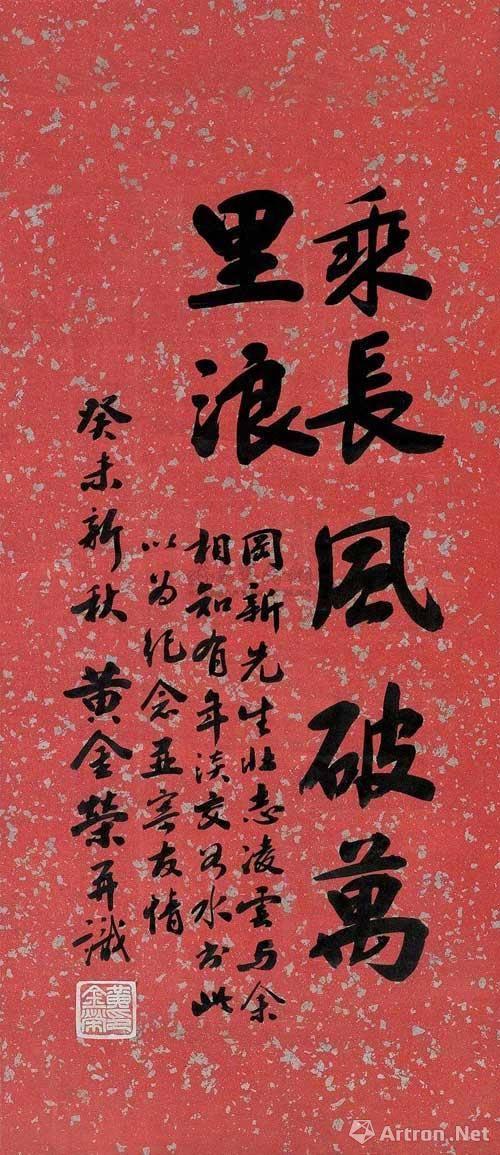 乘長風破萬
里浪
岡新先生壯志凌雲与余
相知有年淡交若水書此
以为纪念並寄友情
癸未新秋 黄金榮并識
黄金榮印
Artron.Net